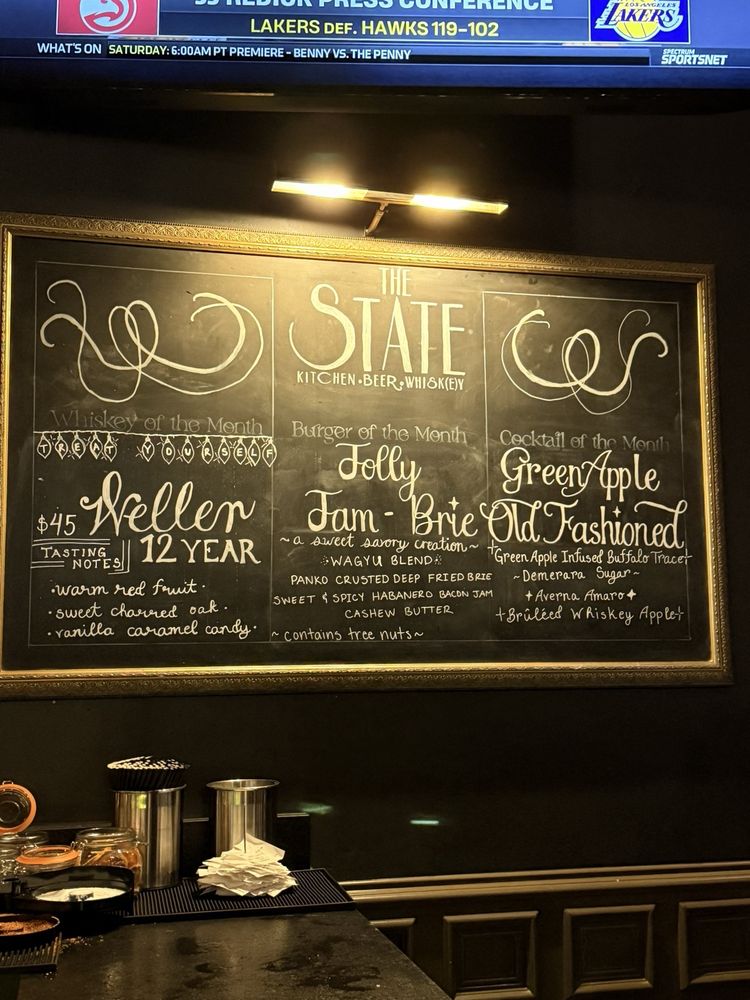 REDICK PRESS CONFERENCE
LAKERS DEF. HAWKS 119-102
LOS ANGELES
LAKERS
WHAT'S ON SATURDAY: 6:00AM PT PREMIERE - BENNY VS. THE PENNY
SPECTRUM
SPORTSNET
THE
STATE
KITCHEN • BEER • WHISK(E)Y
Whiskey of the Month
TREAT YOURSELF
$45 Weller
12 YEAR
TASTING
NOTES
• warm red fruit •
• sweet charred oak •
• vanilla caramel candy •
Burger of the Month
Jolly
Jam - Brie
~ a sweet savory creation ~
WAGYU BLEND
PANKO CRUSTED DEEP FRIED BRIE
SWEET & SPICY HABANERO BACON JAM
CASHEW BUTTER
~ contains tree nuts ~
Cocktail of the Month
Green Apple
Old Fashioned
Green Apple Infused Buffalo Trace
~ Demerara Sugar ~
Averna Amaro
Brûléed Whiskey Apple